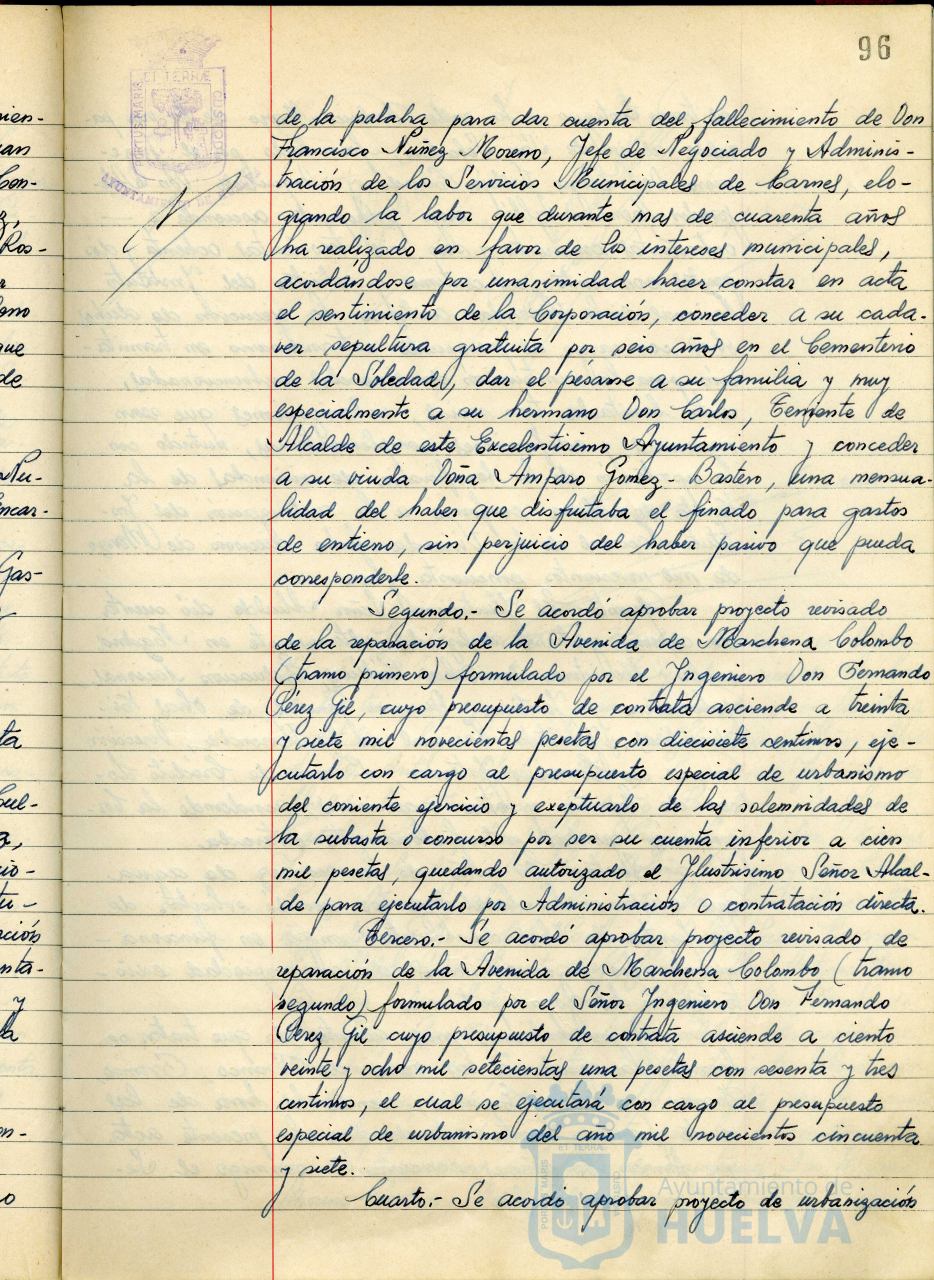 96
de la palabra para dar cuenta del fallecimiento de Don
Francisco Núñez Moreno, Jefe de Negociado y Adminis-
tración de los Servicios Municipales de Carnes, elo-
giando la labor que durante mas de cuarenta años
ha realizado en favor de los intereses municipales,
acordándose por unanimidad hacer constar en acta
el sentimiento de la Corporación, conceder a su cada-
ver sepultura gratuita por seis años en el Cementerio
de la Soledad, dar el pésame a su familia y muy
especialmente a su hermano Don Carlos, Teniente de
Alcalde de este Excelentisimo Ayuntamiento y conceder
a su viuda Doña Amparo Gomez-Bastero, una mensua-
lidad del haber que disfrutaba el finado para gastos
de entierro, sin perjuicio del haber pasivo que pueda
corresponderle.
Segundo.- Se acordó aprobar proyecto revisado
de la reparación de la Avenida de Marchena Colombo
(tramo primero) formulado por el Ingeniero Don Fernando
Pérez Gil, cuyo presupuesto de contrata asciende a treinta
y siete mil novecientas pesetas con diecisiete centimos, eje-
cutarlo con cargo al presupuesto especial de urbanismo
del corriente ejercicio y exeptuarlo de las solemnidades de
la subasta o concurso por ser su cuenta inferior a cien
mil pesetas, quedando autorizado el Ilustrisimo Señor Alcal-
de para ejecutarlo por Administración o contratación directa.
Tercero.- Se acordó aprobar proyecto revisado de
reparación de la Avenida de Marchena Colombo (tramo
segundo) formulado por el Señor Ingeniero Don Fernando
Perez Gil cuyo presupuesto de contrata asciende a ciento
veinte y ocho mil setecientas una pesetas con sesenta y tres
centimos, el cual se ejecutará con cargo al presupuesto
especial de urbanismo del año mil novecientos cincuenta
y siete.
Cuarto.- Se acordó aprobar proyecto de urbanización
Ayuntamiento de
HUELVA